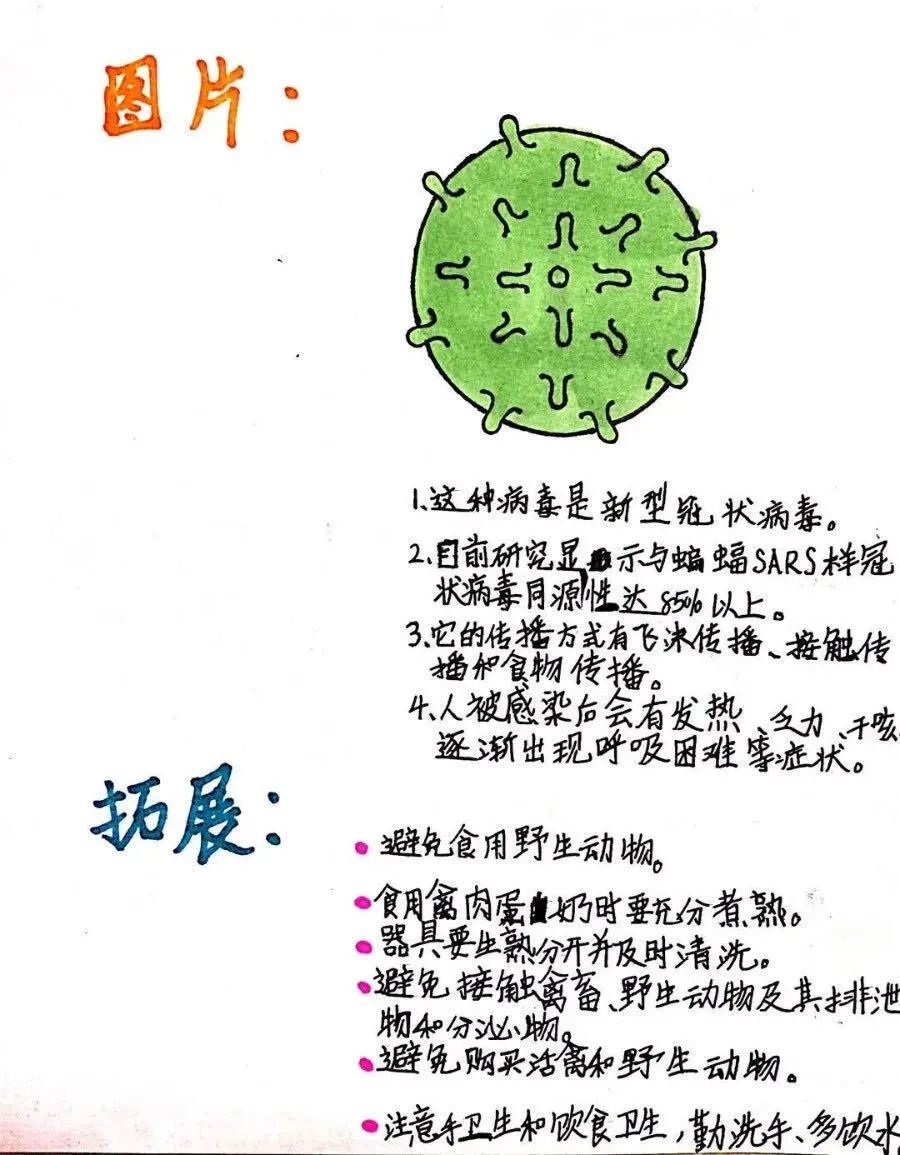 图片：
1.这种病毒是新型冠状病毒。
2.目前研究显示与蝙蝠SARS样冠
状病毒同源性达85%以上。
3.它的传播方式有飞沫传播、接触传
播和食物传播。
4.人被感染后会有发热、乏力、干咳
逐渐出现呼吸困难等症状。
拓展：
避免食用野生动物。
食用禽肉蛋奶时要充分煮熟。
器具要生熟分开并及时清洗。
避免接触禽畜、野生动物及其排泄
物和分泌物。
避免购买活禽和野生动物。
注意手卫生和饮食卫生，勤洗手、多饮水